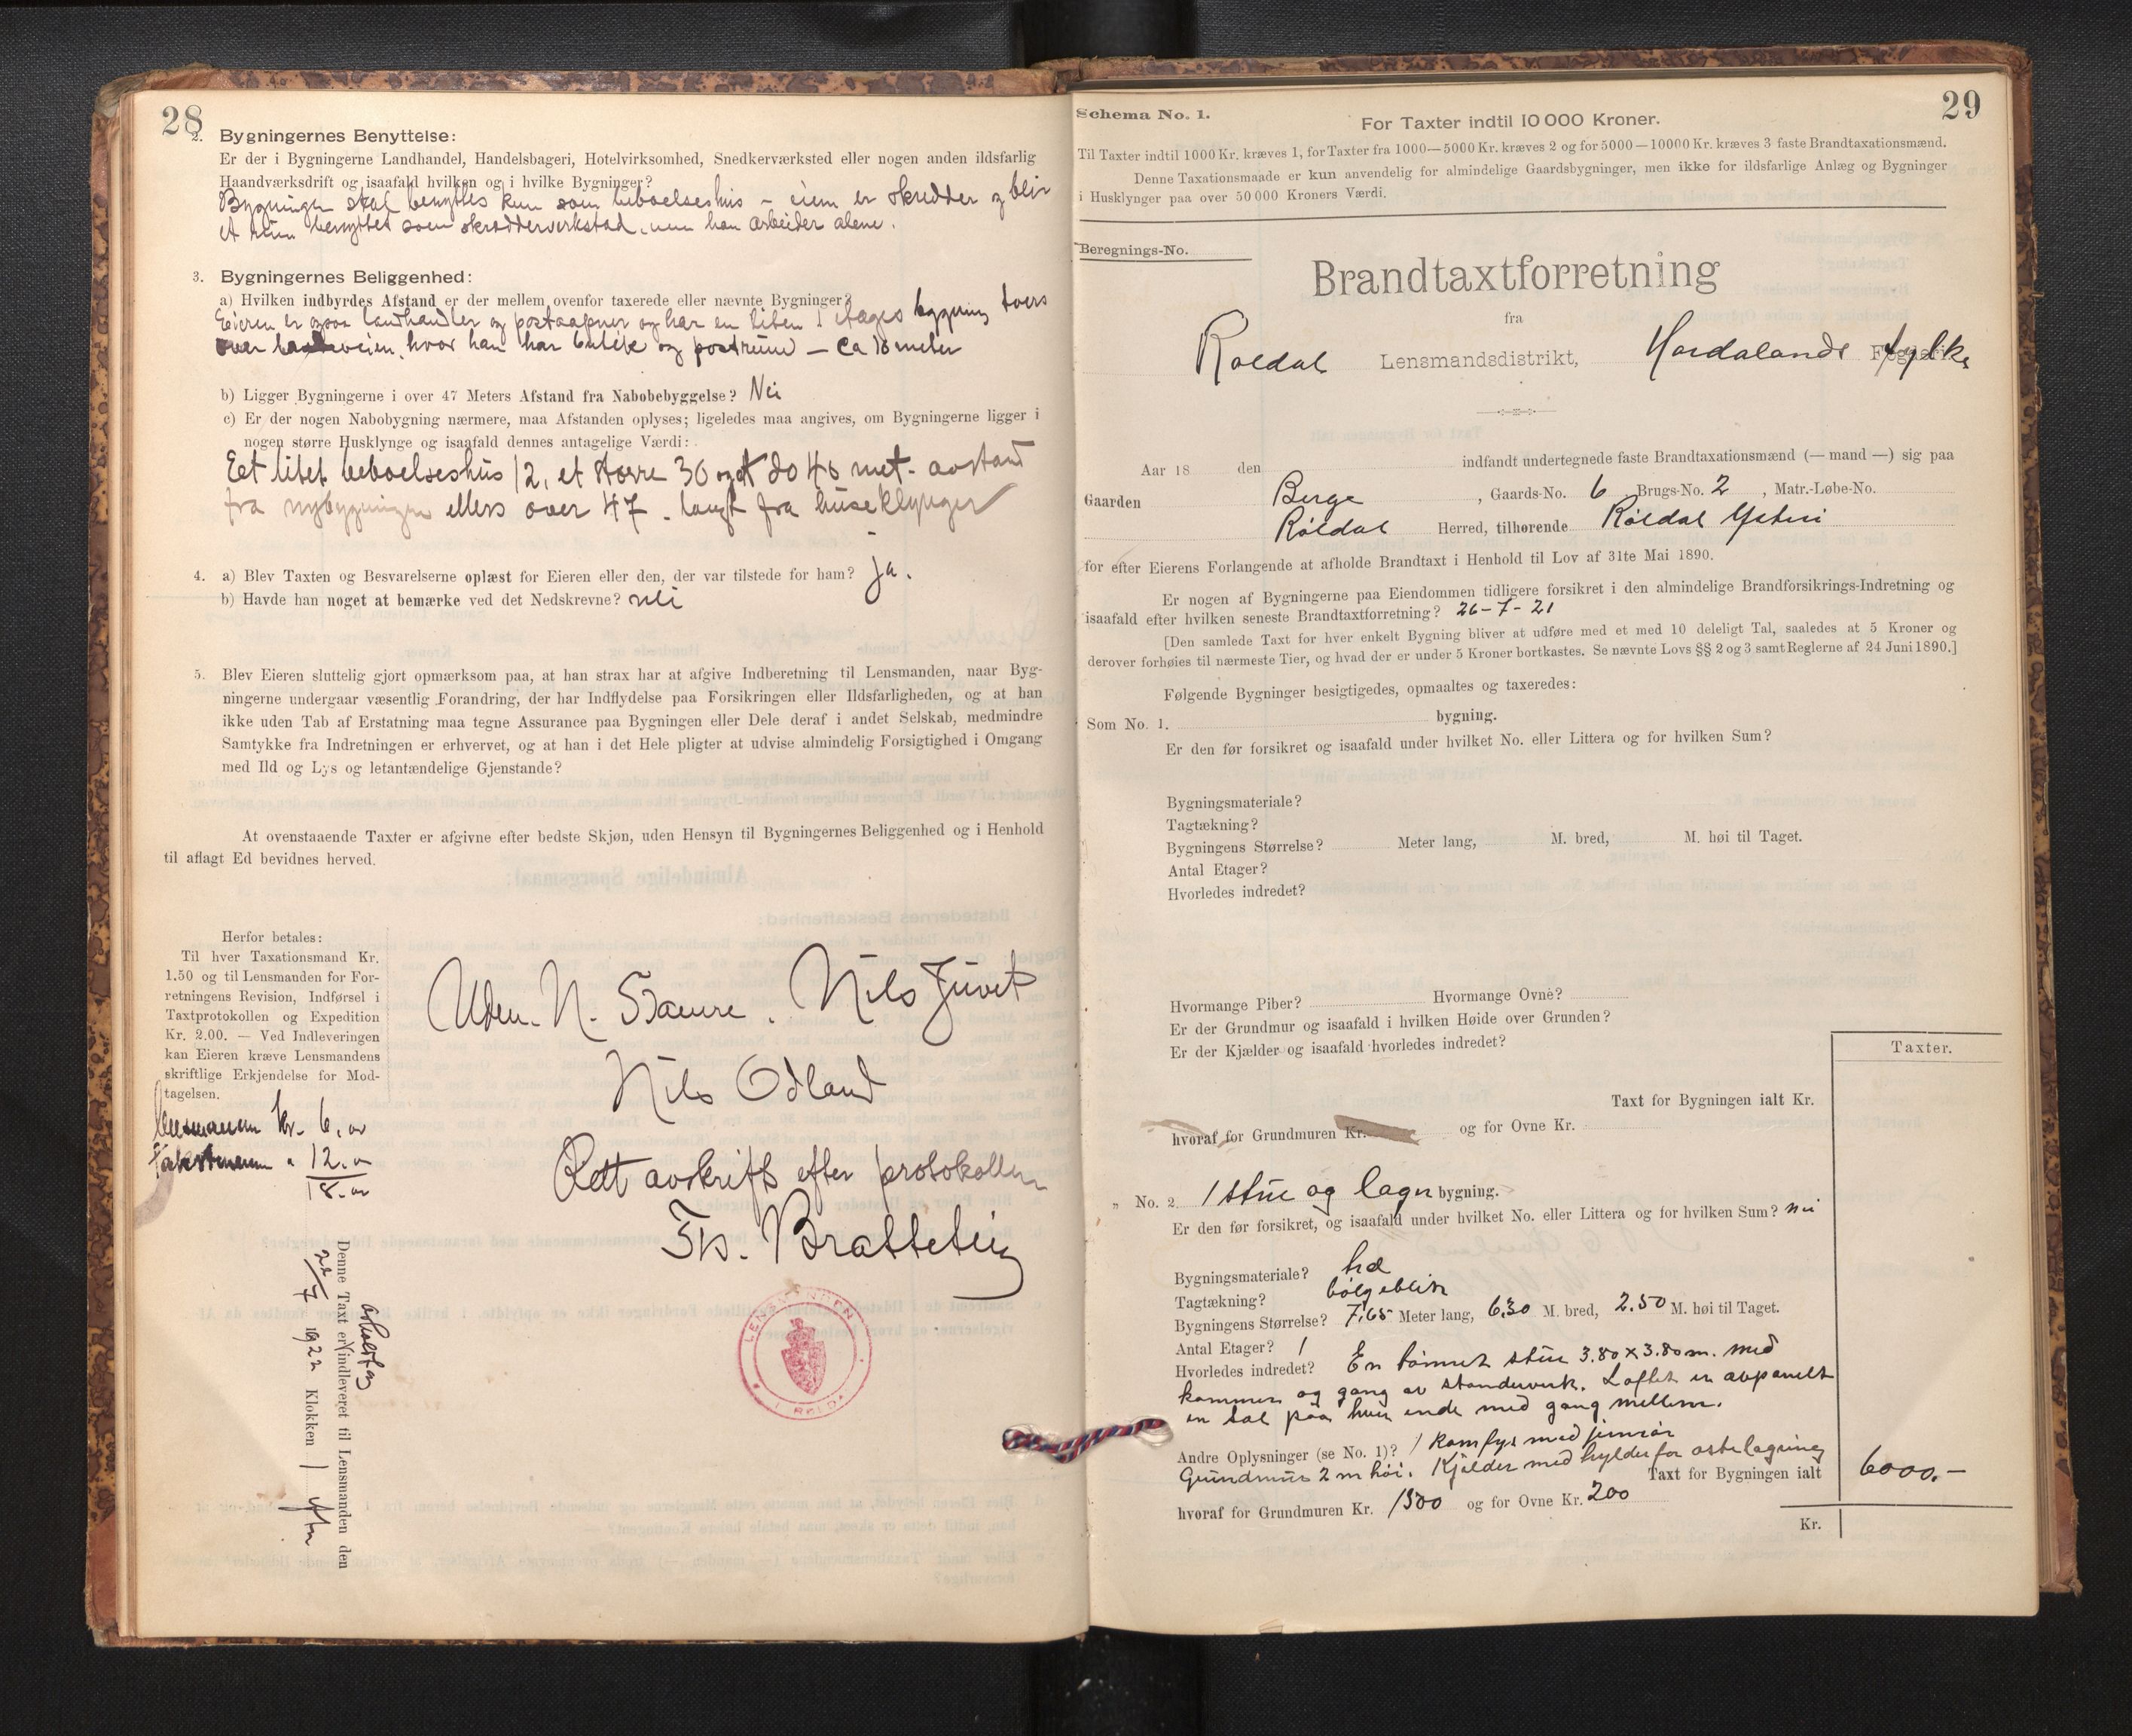 28
2. Bygningernes Benyttelse:
Er der i Bygningerne Landhandel, Handelsbageri, Hotelvirksomhed, Snedkerværksted eller nogen anden ildsfarlig
Haandværksdrift og isaafald hvilken og i hvilke Bygninger?
Bygningen skal benyttes kun som beboelseshus – eieren er skredder og blir
et rum benyttet som skrædderverkstad, men han arbeider alene.
3. Bygningernes Beliggenhed:
a) Hvilken indbyrdes Afstand er der mellem ovenfor taxerede eller nævnte Bygninger?
Eieren er ogsaa landhandler og postaapner og har en liten 1 etages bygning tvers
over veien, hvor han har butik og postrum – ca 10 meter
b) Ligger Bygningerne i over 47 Meters Afstand fra Nabobebyggelse? Nei
c) Er der nogen Nabobygning nærmere, maa Afstanden oplyses; ligeledes maa angives, om Bygningerne ligger i
nogen større Husklynge og isaafald dennes antagelige Værdi:
Eet litet beboelseshus 12, et større 30 og et do 40 met. avstand
fra nybygningen ellers over 47. langt fra huseklynger
4. a) Blev Taxten og Besvarelserne oplæst for Eieren eller den, der var tilstede for ham? ja.
b) Havde han noget at bemærke ved det Nedskrevne? nei
5. Blev Eieren sluttelig gjort opmærksom paa, at han strax har at afgive Indberetning til Lensmanden, naar Byg-
ningerne undergaar væsentlig Forandring, der har Indflydelse paa Forsikringen eller Ildsfarligheden, og at han
ikke uden Tab af Erstatning maa tegne Assurance paa Bygningen eller Dele deraf i andet Selskab, medmindre
Samtykke fra Indretningen er erhvervet, og at han i det Hele pligter at udvise almindelig Forsigtighed i Omgang
med Ild og Lys og letantændelige Gjenstande?
At ovenstaaende Taxter er afgivne efter bedste Skjøn, uden Hensyn til Bygningernes Beliggenhed og i Henhold
til aflagt Ed bevidnes herved.
Herfor betales:
Til hver Taxationsmand Kr.
1.50 og til Lensmanden for For-
retningens Revision, Indførsel i
Taxtprotokollen og Expedition
Kr. 2.00. — Ved Indleveringen
kan Eieren kræve Lensmandens
skriftlige Erkjendelse for Mod-
tagelsen.
Lensmannen kr. 6,00
Takstmenn " 12.00
18.00
N. Nils Juvet
Nils Odland
Rett avskrift efter protokollen
Brattetein
LENSMANDEN I RØLDAL
Denne Taxt er indleveret til Lensmanden den
avholdt og
22/7 1922 Klokken 1 eftm
29
Schema No. 1.
For Taxter indtil 10 000 Kroner.
Til Taxter indtil 1000 Kr. kræves 1, for Taxter fra 1000—5000 Kr. kræves 2 og for 5000—10000 Kr. kræves 3 faste Brandtaxationsmænd.
Denne Taxationsmaade er kun anvendelig for almindelige Gaardsbygninger, men ikke for ildsfarlige Anlæg og Bygninger
i Husklynger paa over 50 000 Kroners Værdi.
Beregnings-No.
Brandtaxtforretning
fra
Røldal Lensmandsdistrikt, Hordalands Fogderi fylke
Aar 18 den indfandt undertegnede faste Brandtaxationsmænd (— mand —) sig paa
Gaarden Berge, Gaards-No. 6 Brugs-No. 2, Matr.-Løbe-No.
Røldal Herred, tilhørende Røldal Ysteri
for efter Eierens Forlangende at afholde Brandtaxt i Henhold til Lov af 31te Mai 1890.
Er nogen af Bygningerne paa Eiendommen tidligere forsikret i den almindelige Brandforsikrings-Indretning og
isaafald efter hvilken seneste Brandtaxtforretning? 26-7-21
[Den samlede Taxt for hver enkelt Bygning bliver at udføre med et med 10 deleligt Tal, saaledes at 5 Kroner og
derover forhøies til nærmeste Tier, og hvad der er under 5 Kroner bortkastes. Se nævnte Lovs §§ 2 og 3 samt Reglerne af 24 Juni 1890.]
Følgende Bygninger besigtigedes, opmaaltes og taxeredes:
Som No. 1. bygning.
Er den før forsikret og isaafald under hvilket No. eller Littera og for hvilken Sum?
Bygningsmateriale?
Tagtækning?
Bygningens Størrelse? Meter lang, M. bred, M. høi til Taget.
Antal Etager?
Hvorledes indredet?
Hvormange Piber? Hvormange Ovne?
Er der Grundmur og isaafald i hvilken Høide over Grunden?
Er der Kjælder og isaafald hvorledes indredet?
Taxter.
Taxt for Bygningen ialt Kr.
hvoraf for Grundmuren Kr. og for Ovne Kr.
„ No. 2. 1 stue og lager bygning.
Er den før forsikret, og isaafald under hvilket No. eller Littera og for hvilken Sum? nei
Bygningsmateriale? træ
Tagtækning? bølgeblik
Bygningens Størrelse? 7,65 Meter lang, 6,30 M. bred, 2.50 M. høi til Taget.
Antal Etager? 1
Hvorledes indredet? En tømret stue 3.80 x 3.80 m. med
kammer og gang av standerverk. Loftet er avpanelt
en sal paa hver ende med gang mellem.
Andre Oplysninger (se No. 1)? 1 komfyr med jernrør
Grundmur 2 m høi. Kjelder med hylder for ostelagring
Taxt for Bygningen ialt 6000.-
hvoraf for Grundmuren Kr. 1500 og for Ovne Kr. 200
Kr.